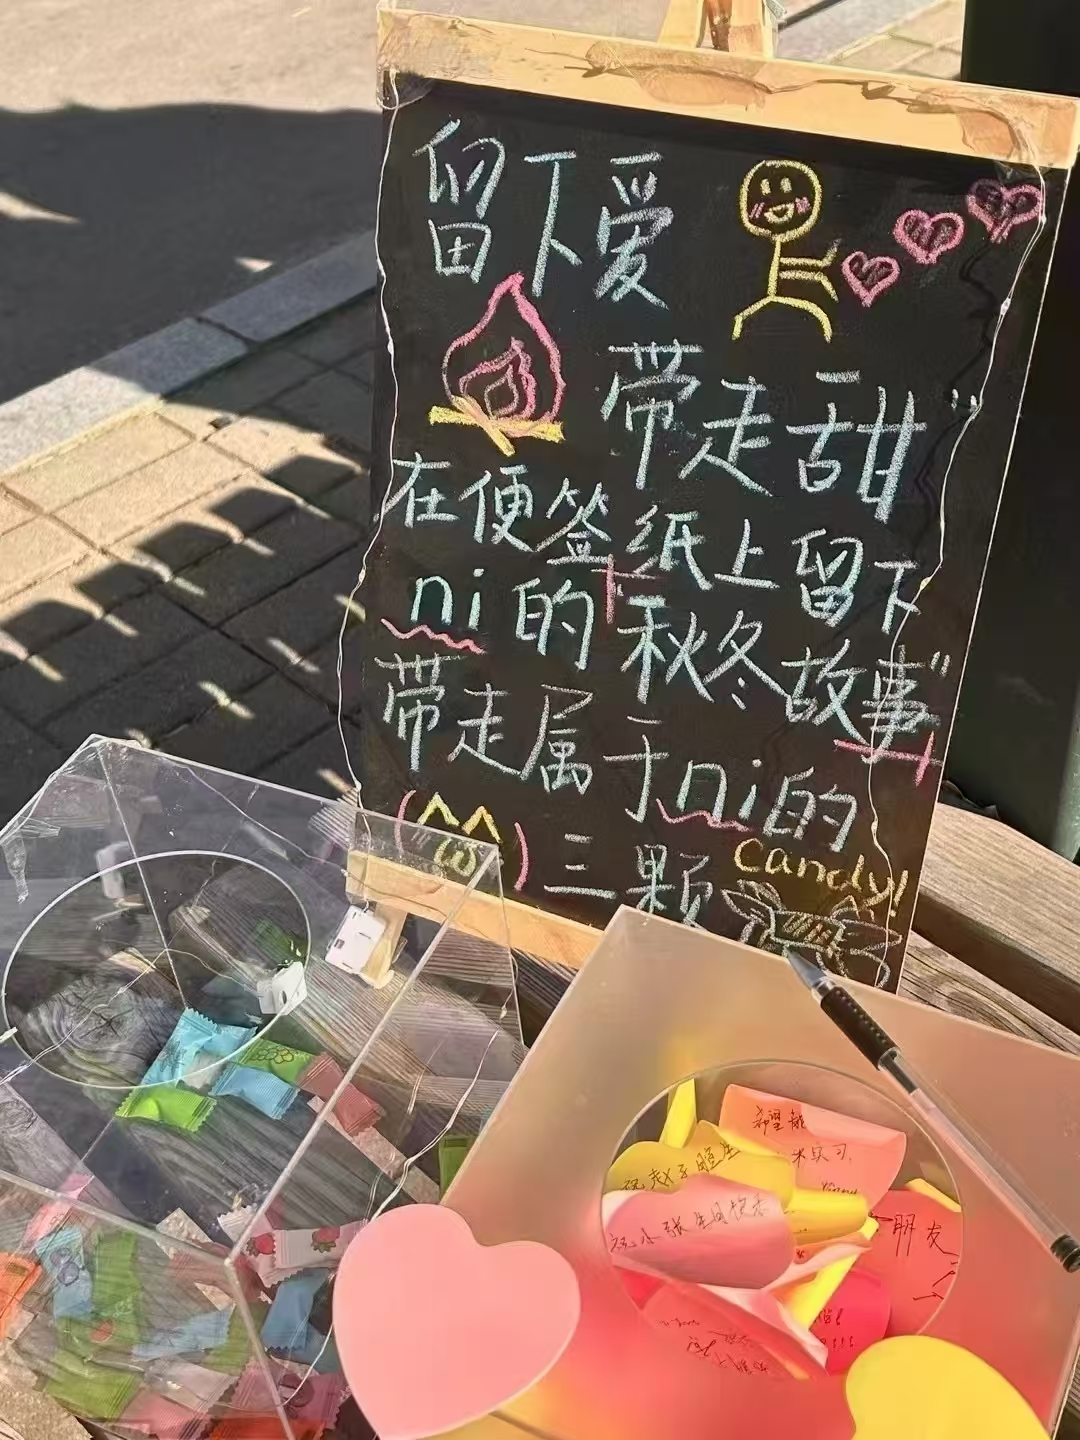 留下爱
带走甜"
在便签纸上留下
ni的"秋冬故事"
带走属于ni的
三颗
candy!
希望能
来实习.
祝小张生日快乐
朋友